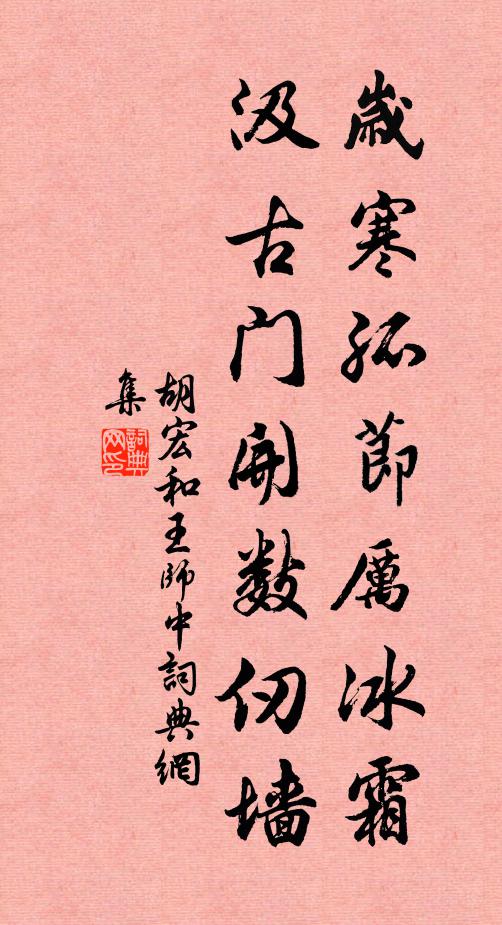 歲寒孤節厲冰霜
汲古門開數仞墻
胡宏和王師中詞典網
集
詞典
网印